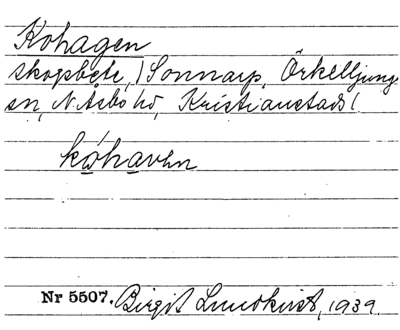 Kohagen
skogsbete, 1 Sonnarp, Örkelljunga
sn, N. Åsbo hd, Kristianstads l.
kóhaven
Nr 5507. Birgit Lundkvist, 1939